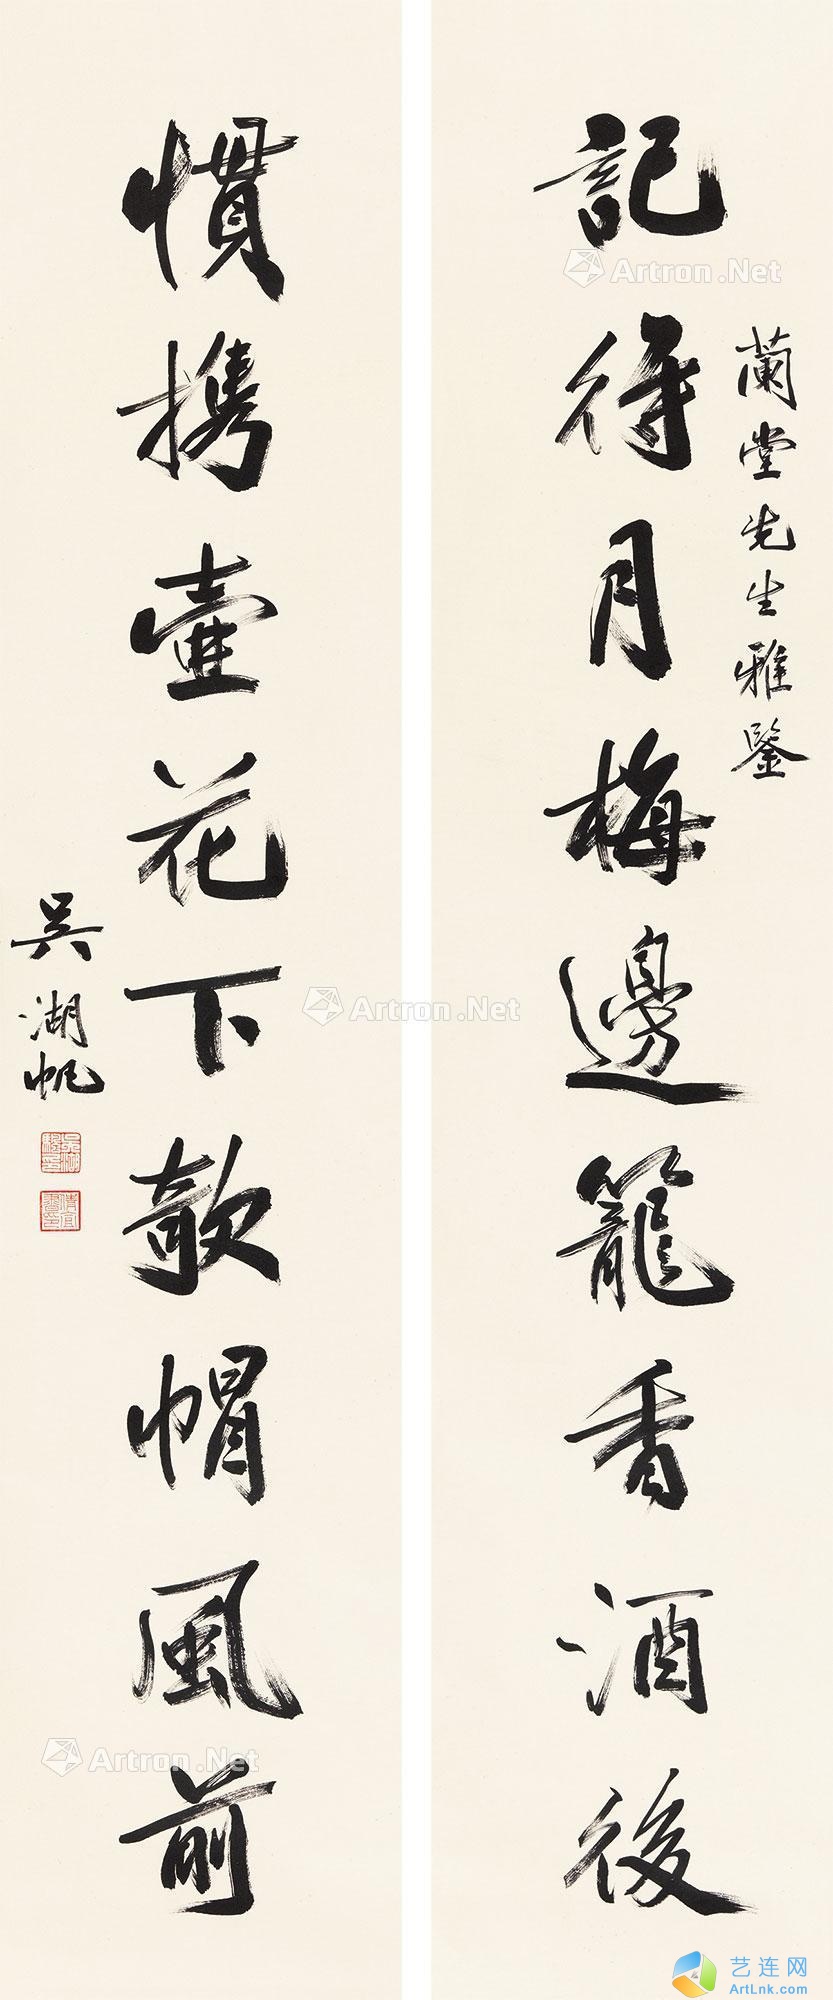 蘭堂先生雅鑒
記待月梅邊籠香酒後
慣携壺花下欹帽風前
吳湖帆
Artron.Net
Artron.Net
Artron.Net
艺连网
ArtLnk.com